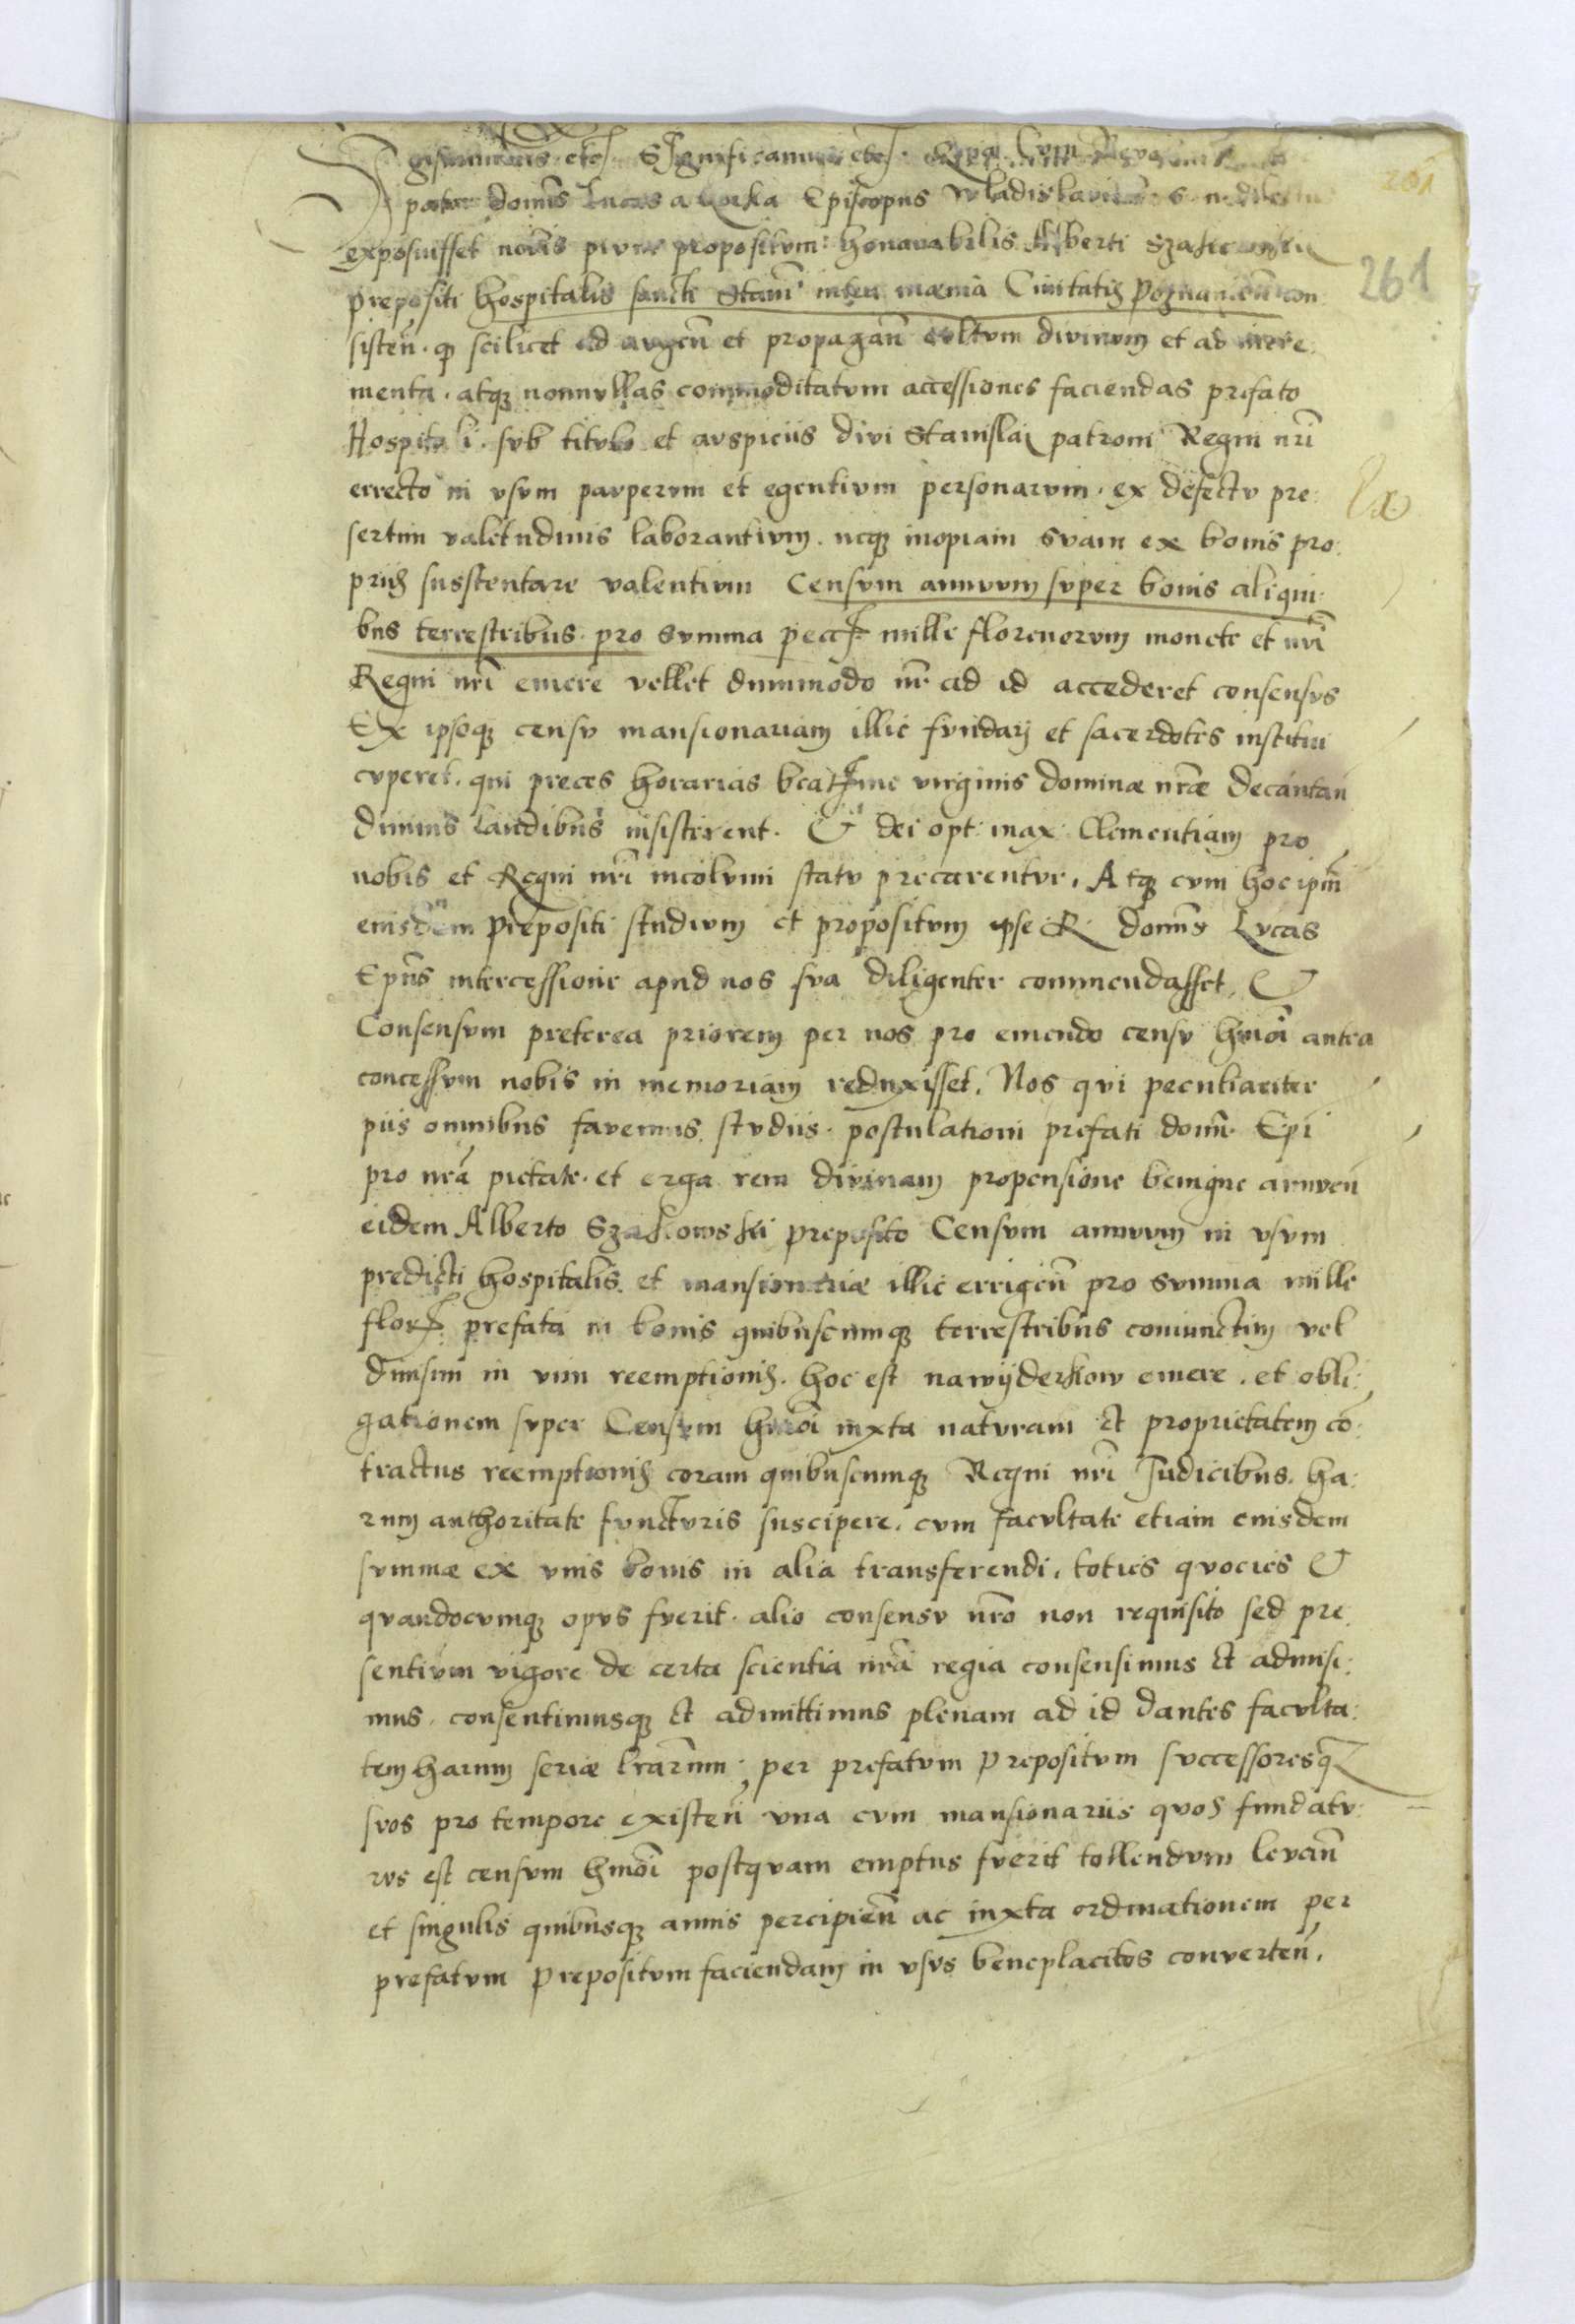 Sigismundus etc. Significamus etc. Quia Cum Reverendus
pater domns Lucas a Gorka Episcopus Wladislavien s. n. dilectus
exposuisset nobis pium propositum: honorabilis Alberti
prepositi hospitalis sancti Stani intra mænia Civitatis Poznanien con
sisten. qp scilicet ad augen et propagan cultum divinum et ad incre
menta. atqz nonnullas commoditatum accessiones faciendas prefato
Hospitali. sub titulo et auspiciis divi Stanislai patroni Regni nri
errecto in usum pauperum et egentium personarum. ex defectu pre:
sertim valetudinis laborantium. neqz inopiam suam ex bonis pro:
priis susstentare valentium Censum annuum super bonis aliqui:
bus terrestribus. pro summa pecc mille florenorum monete et nri
Regni nri emere vellet dummodo nr ad id accederet consensus
Ex ipsoqz censu mansionariam illic fundarij et sacerdotes institui
cuperet. qui preces horarias beatissime virginis dominæ nræ decantan
divinis laudibus insisterent. Et dei opt: max: Clementiam pro
nobis et Regni nri incolumi statu precarentur. Atqz cum hoc ipm
eiusdem Prepositi studium et propositum ipse R. domns Lucas
Epus intercessione apud nos sua diligenter commendasset, Et
Consensum preterea priorem per nos pro emendo censu hmoi antea
concessum nobis in memoriam reduxisset. Nos qui peculiariter
piis omnibus favemus studiis. postulationi prefati domi Epi
pro nra pietate. et erga rem divinam propensione benigne annuen
eidem Alberto preposito Censum annuum in usum
predicti hospitalis. et mansionariæ illic errigen pro summa mille
flor prefata in bonis quibuscumqz terrestribus coniunctim vel
divisim in vim reemptionis. hoc est nawyderkow emere. et obli:
gationem super Censum hmoi iuxta naturam et proprietatem co:
tractus reemptionis coram quibuscumqz Regni nri Iudicibus. ha:
rum authoritate functuris suscipere. cum facultate etiam eiusdem
summæ ex unis bonis in alia transferendi. toties quocies Et
quandocumqz opus fuerit. alio consensu nro non requisito sed pre
sentium vigore de certa scientia nra regia consensimus et admisi:
mus. consentimusqz et admittimus plenam ad id dantes faculta:
tem harum seriæ lrarum. per prefatum Prepositum successoresq
suos pro tempore existen una cum mansionariis quos fundatu:
rus est censum hmoi postquam emptus fuerit tollendum levan
et singulis quibusqz annis percipien ac iuxta ordinationem per
prefatum Prepositum faciendam in usus beneplacitos converten.
261
261